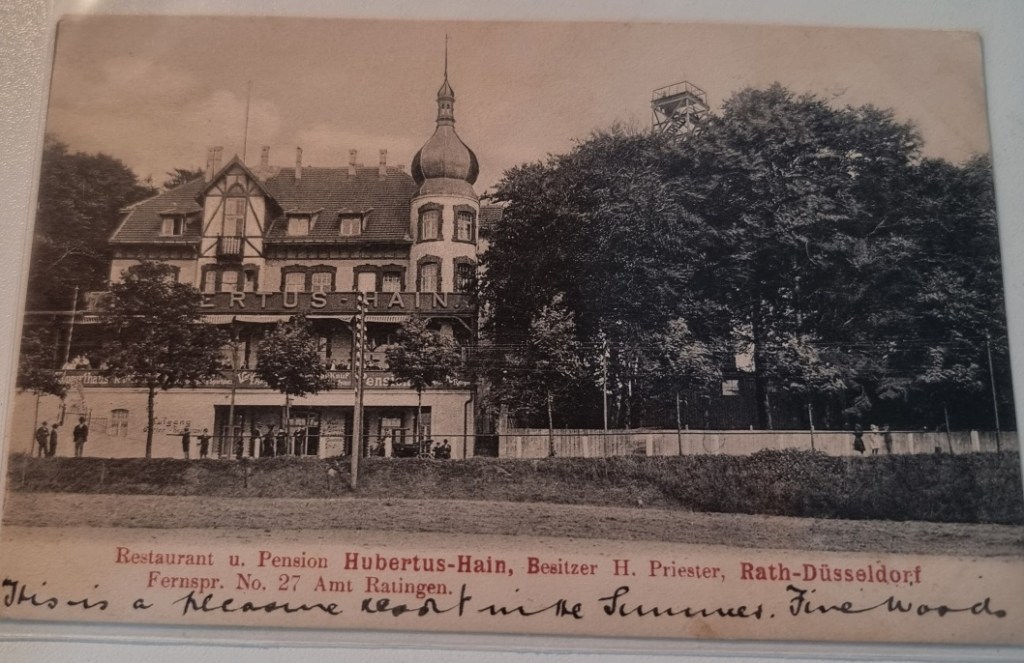 ERTUS-HAIN
Pension
Restaurant u. Pension Hubertus-Hain, Besitzer H. Priester, Rath-Düsseldorf
Fernspr. No. 27 Amt Ratingen.
This is a pleasure resort in the Summer. Fine Woods